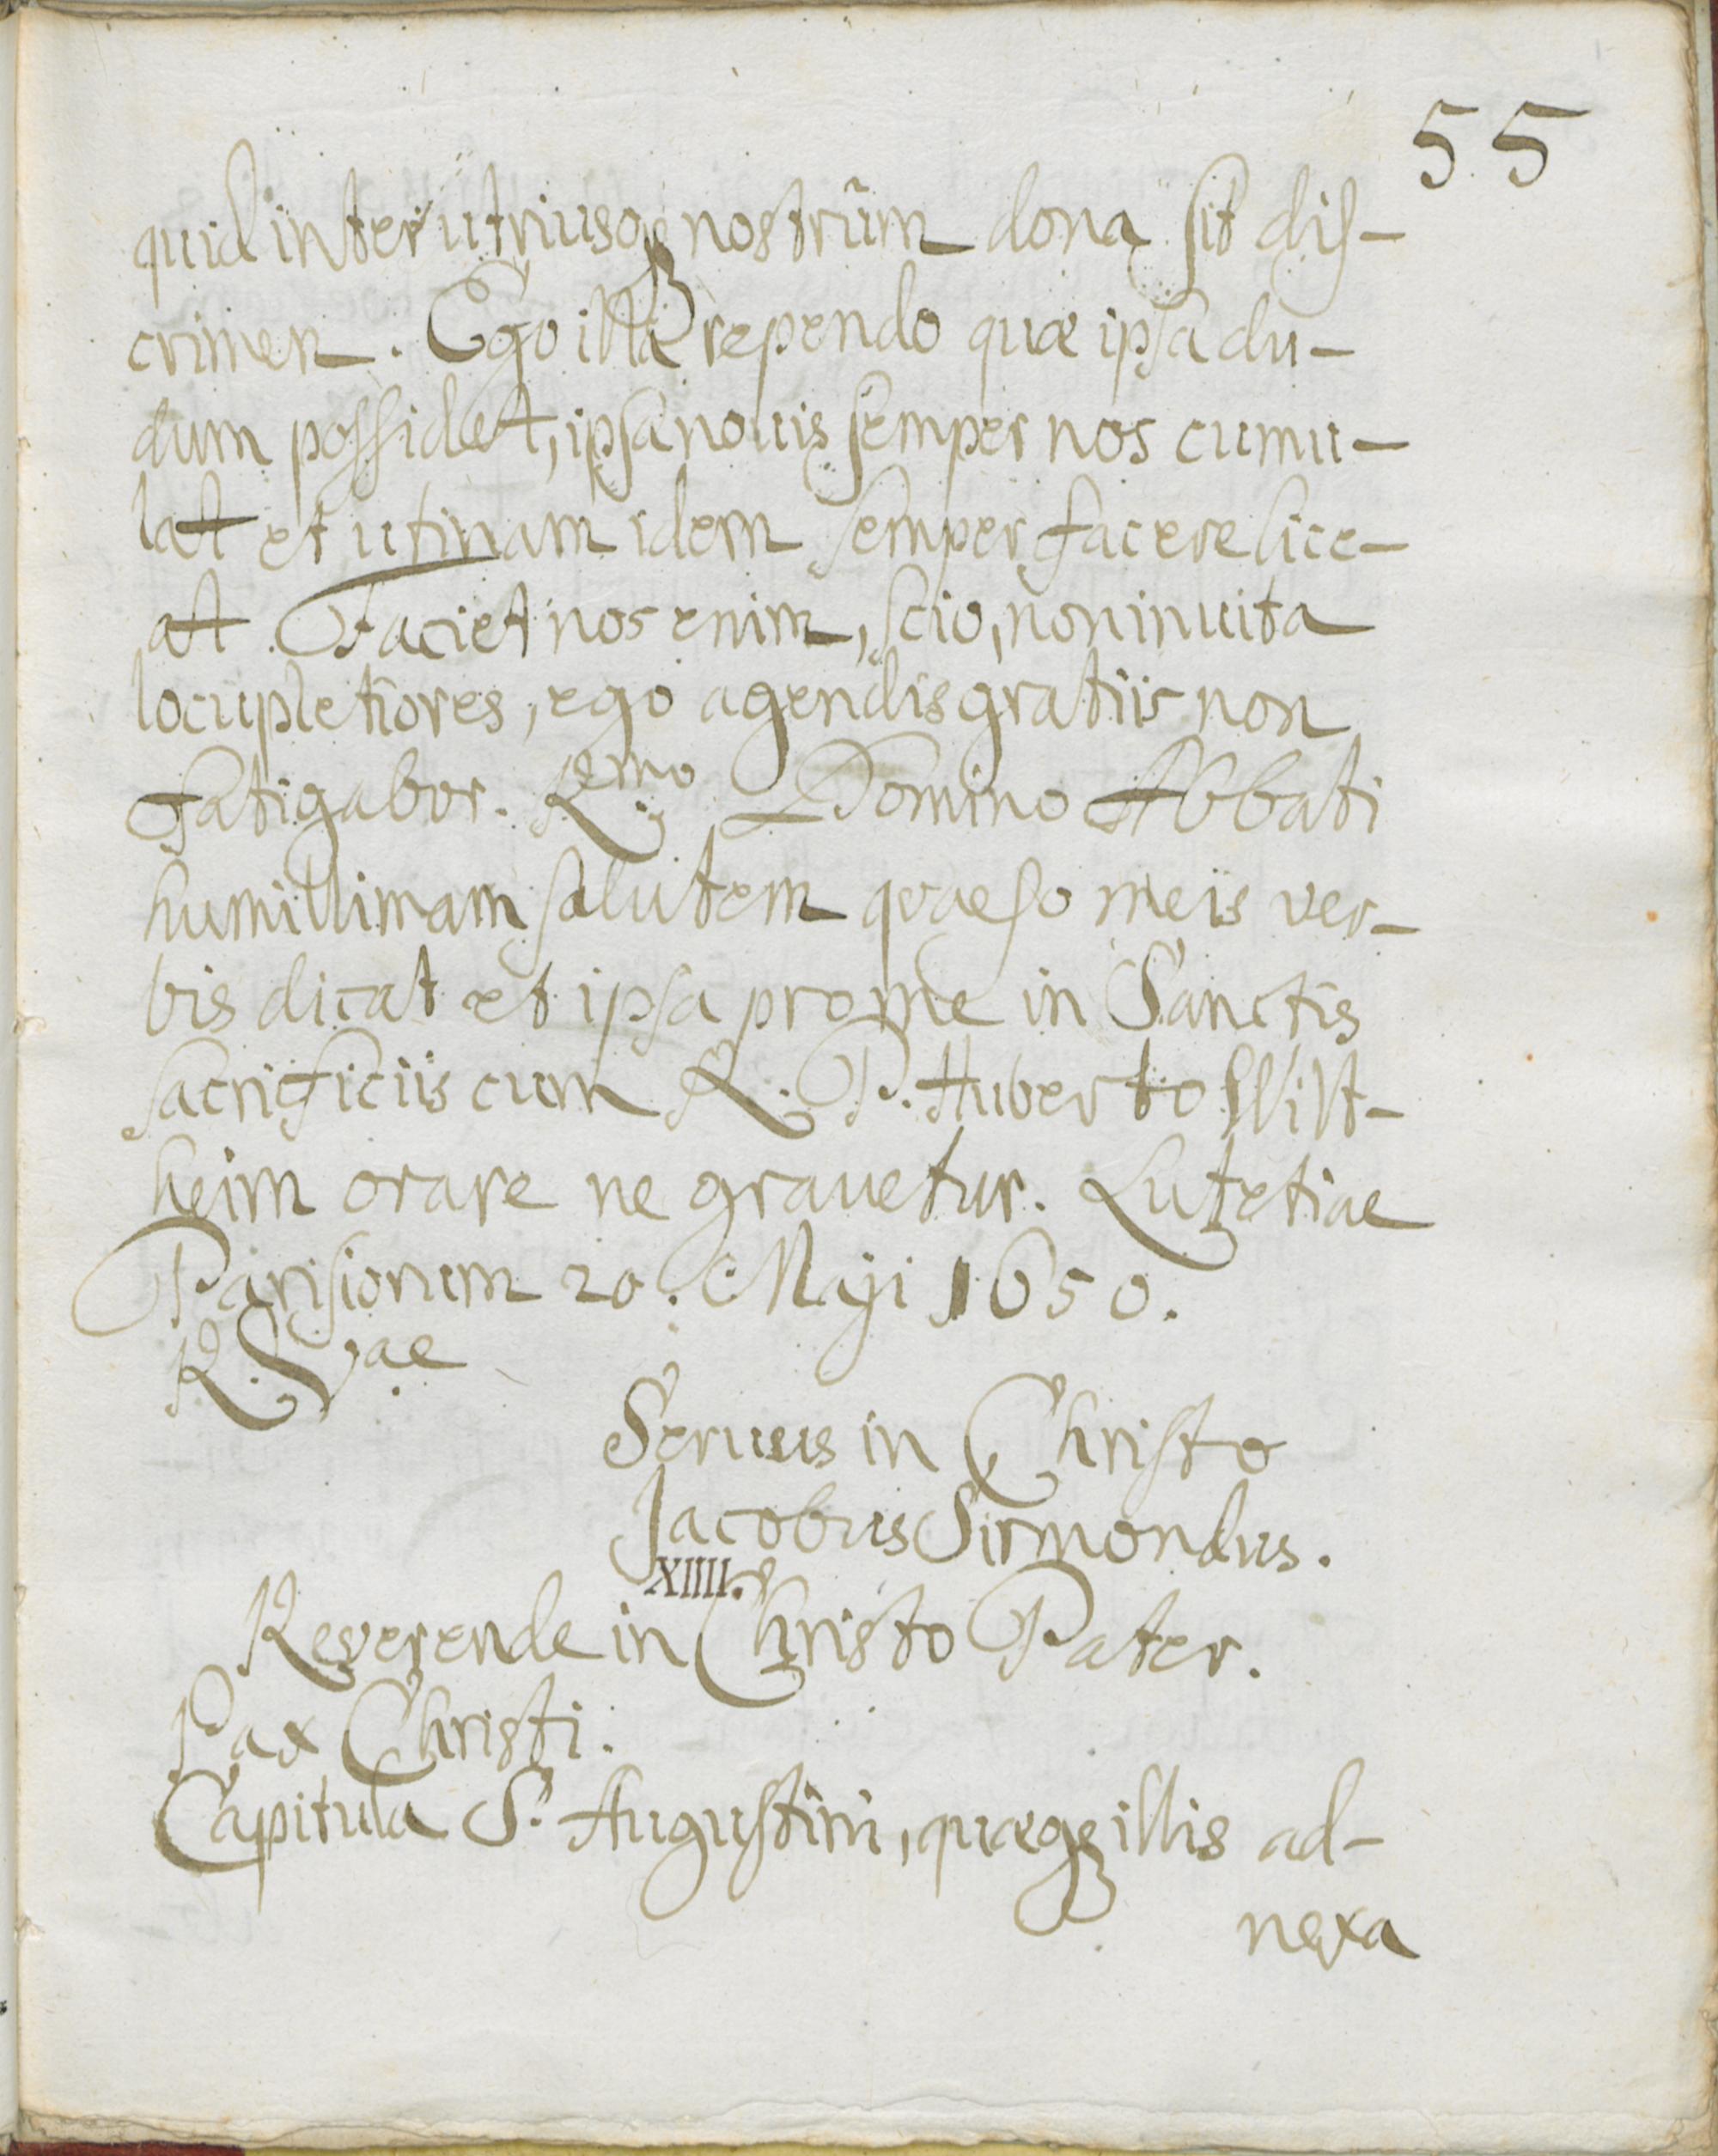 55
quid inter utriusq; nostrûm dona sit dis-
crimen. Ego illa rependo quæ ipsa du-
dum possidet, ipsa nouis semper nos cumu-
lat et utinam idem semper facere lice-
at. Faciet nos enim, scio, non inuita
locupletiores, ego agendis gratiis non
fatigabor. Rmo Domino Abbati
humillimam salutem quaeso meis ver-
bis dicat et ipsa pro me in Sanctis
sacrificiis cum R. P. Huberto Wilt-
heim orare ne grauetur. Lutetiae
Parisiorum 20. Maji 1650.
R. Vae
Seruus in Christo
Jacobus Sirmondus.
XIIII.
Reverende in Christo Pater.
Pax Christi.
Capitula S. Augustini, quæq; illis ad-
nexa